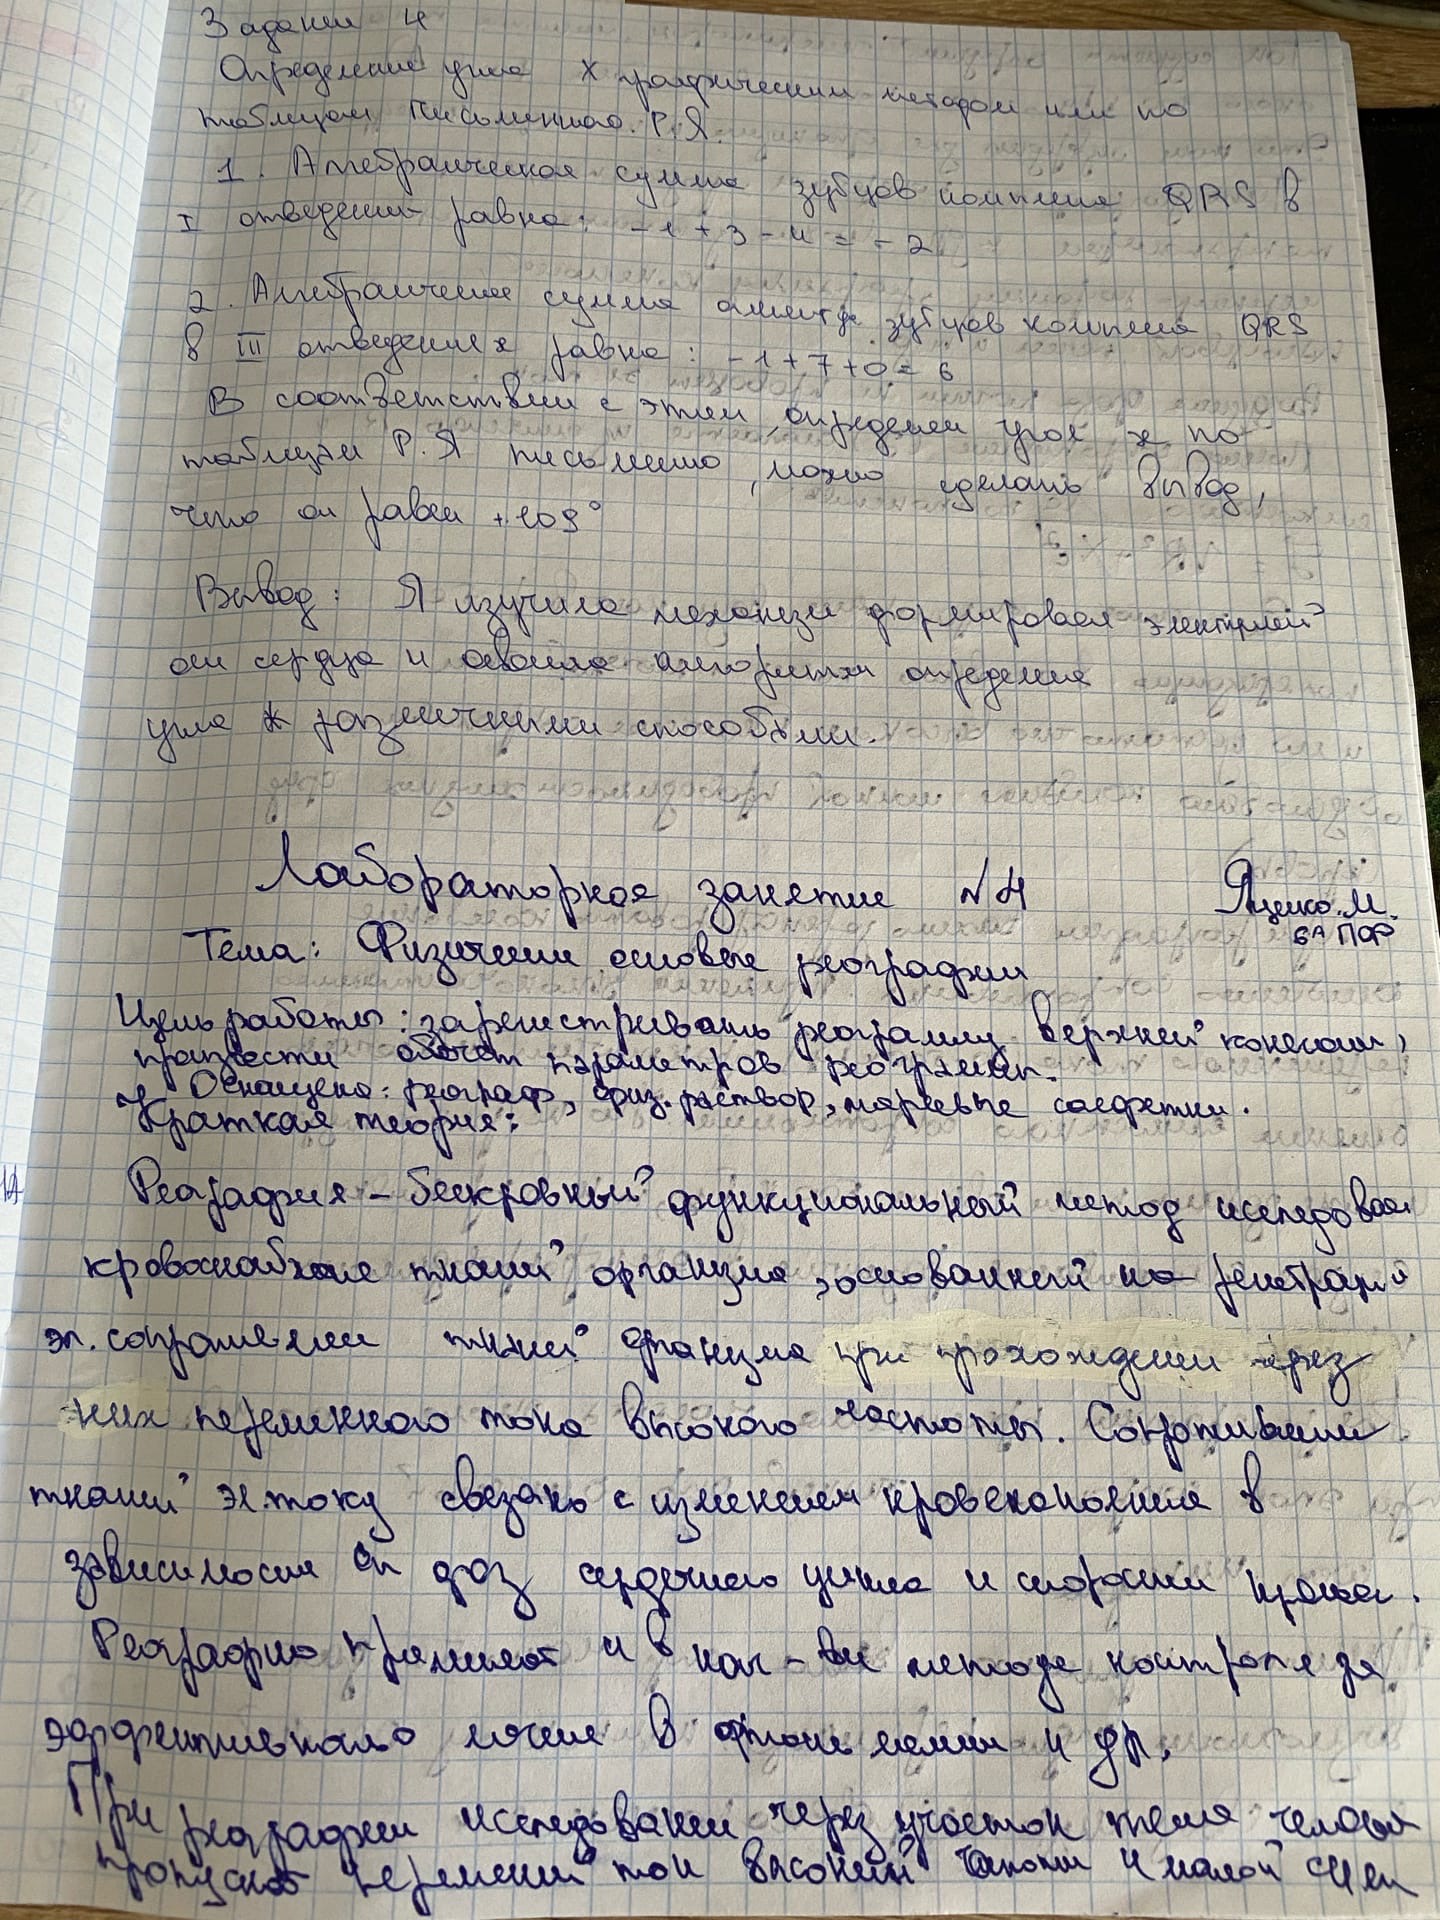 Задании 4
Определение угла α графическим методом или по
таблицам Письменного. Р.Я.
1. Алгебраическая сумма зубцов комплекса QRS в
I отведении равна: -1+3-4=-2
2. Алгебраическая сумма амплитуд зубцов комплекса QRS
в III отведениях равна: -1+7+0=6
В соответствии с этим, определем угол α по
таблицам Р.Я письменно, можно сделать вывод,
что он равен +109°
Вывод: Я изучила механизм формирован электрической
оси сердца и освоила алгоритм определения
угла α различными способами.
Лабораторное занятие №4 Яценко.М.
6А ПФ
Тема: Физически основые реографии
Цель работы: зарегистрировать реограмму верхней конечности,
произвести обсчет параметров реограммы.
Оснащено: реограф, физ.раствор, марлевые салфетки.
Краткая теория:
Реография – бескровный функциональный метод исследован
кровоснабжение тканей организма, основанный на регистрации
эл. сопротивлении тканей организма при прохождении через
них переменного тока высокого частоты. Сопротивление
тканей эл.току связано с изменением кровенаполнения в
зависимости от фаз сердечного цикла и скорости кровотока.
Реографию применяют и в кач-ве метода контроля за
эффективностью лечения в и др.
При реографии исследовании через участок тела человека
пропускают переменный ток высокий частоты и малой силы